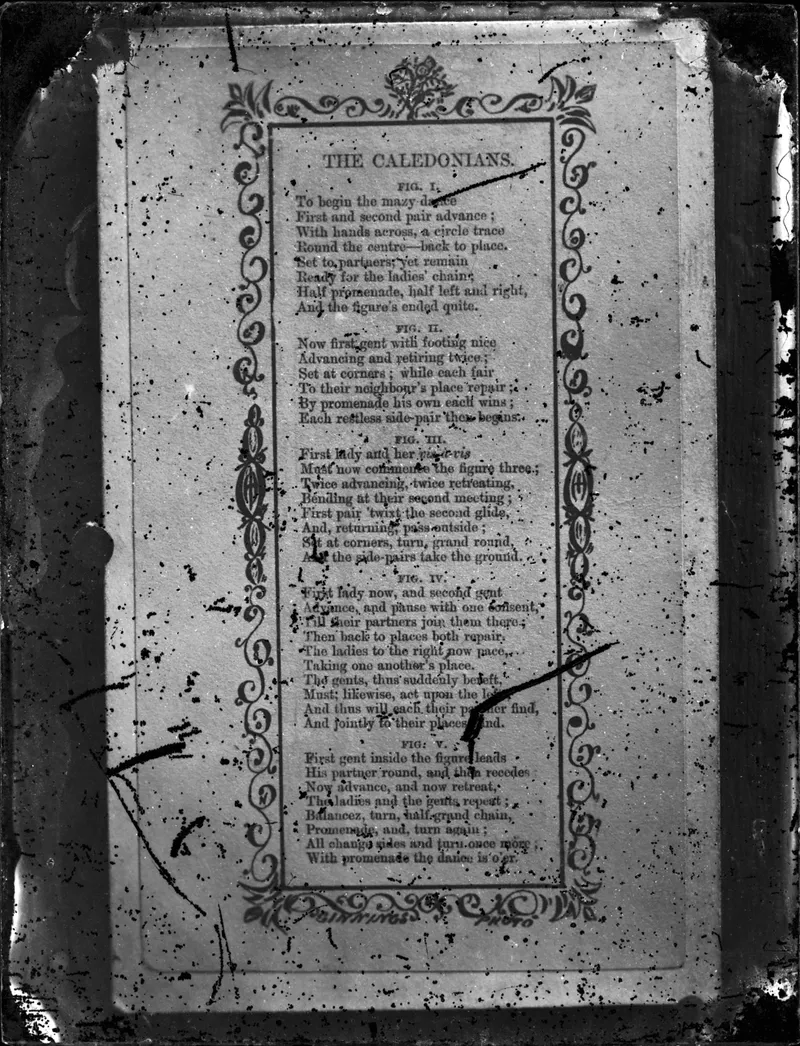 THE CALEDONIANS.
FIG. I.
To begin the mazy dance
First and second pair advance;
With hands across, a circle trace
Round the centre—back to place.
Set to partners; yet remain
Ready for the ladies' chain;
Half promenade, half left and right,
And the figure's ended quite.
FIG. II.
Now first gent with footing nice
Advancing and retiring twice;
Set at corners; while each fair
To their neighbour's place repair;
By promenade his own each wins;
Each restless side-pair then begins.
FIG. III.
First lady and her vis-à-vis
Must now commence the figure three;
Twice advancing, twice retreating,
Bending at their second meeting;
First pair 'twixt the second glide,
And, returning, pass outside;
Set at corners, turn, grand round,
the side-pairs take the ground.
FIG. IV.
First lady now, and second gent
Advance, and pause with one consent,
Till their partners join them there;
Then back to places both repair.
The ladies to the right now pace,
Taking one another's place.
The gents, thus suddenly bereft,
Must, likewise, act upon the left
And thus will each their partner find,
And jointly to their places wend.
FIG. V.
First gent inside the figure leads
His partner round, and then recedes
Now advance, and now retreat,
The ladies and the gents repeat;
Balancez, turn, half-grand chain,
Promenade, and, turn again;
All change sides and turn once more;
With promenade the dance is o'er.
GINNINGS PHOTO